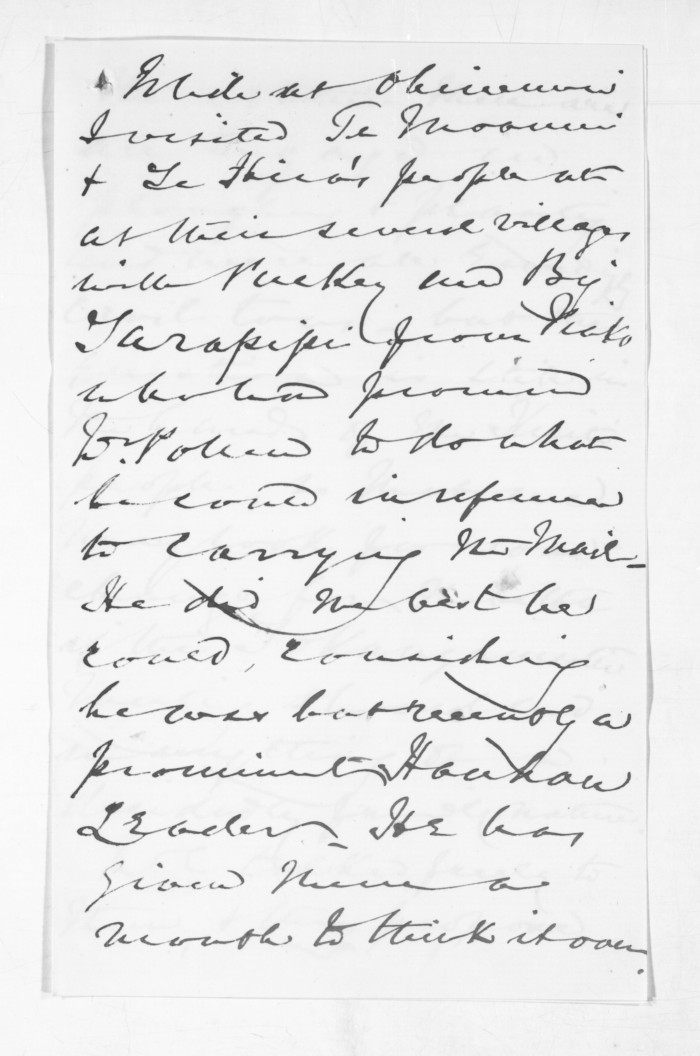 While at Ohinemuri
I visited Te Moananui
& Te Hira's people at
at their several villages
with Puckey and By
Tarapipi from Piako
who had promised
Dr. Pollen to do what
he could in reference
to carrying the Mail_
He did the best he
could, considering
he was but recently a
prominent Hauhau
Leader_ He has
given them a
month to think it over.